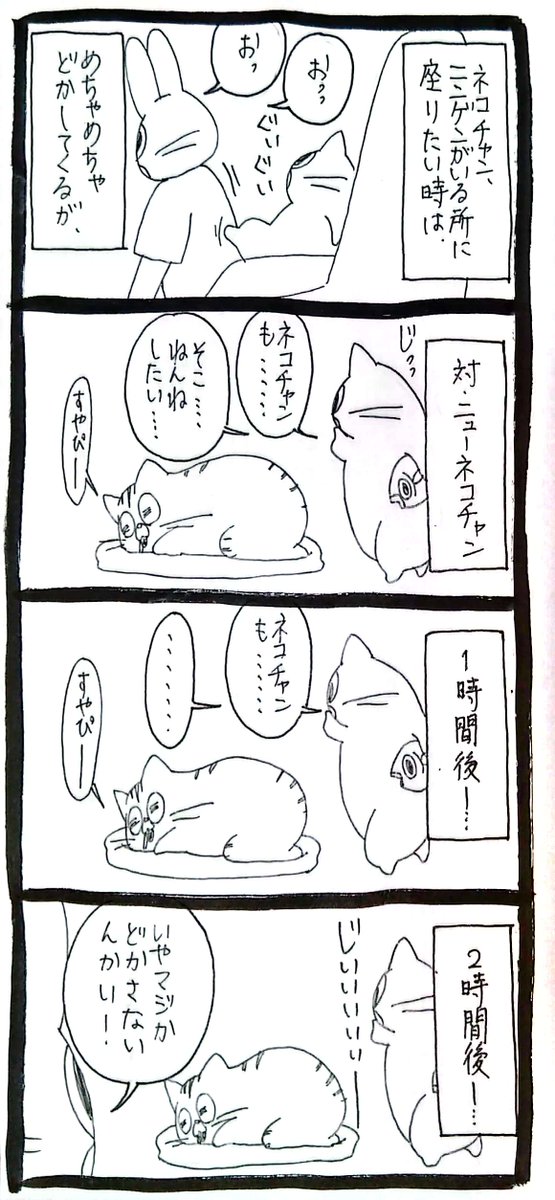 ネコチャン、
ニンゲンがいる所に
座りたい時は、
おっ
おっ
ぐいぐい
めちゃめちゃ
どかしてくるが、
対・ニューネコチャン
じっ
ネコチャン
も……
そこ……
ねんね
したい…
すやぴー
1時間後ー…
ネコチャン
も……
……
すやぴー
2時間後ー…
じぃぃぃぃぃー
いやマジか
どかさない
んかい！